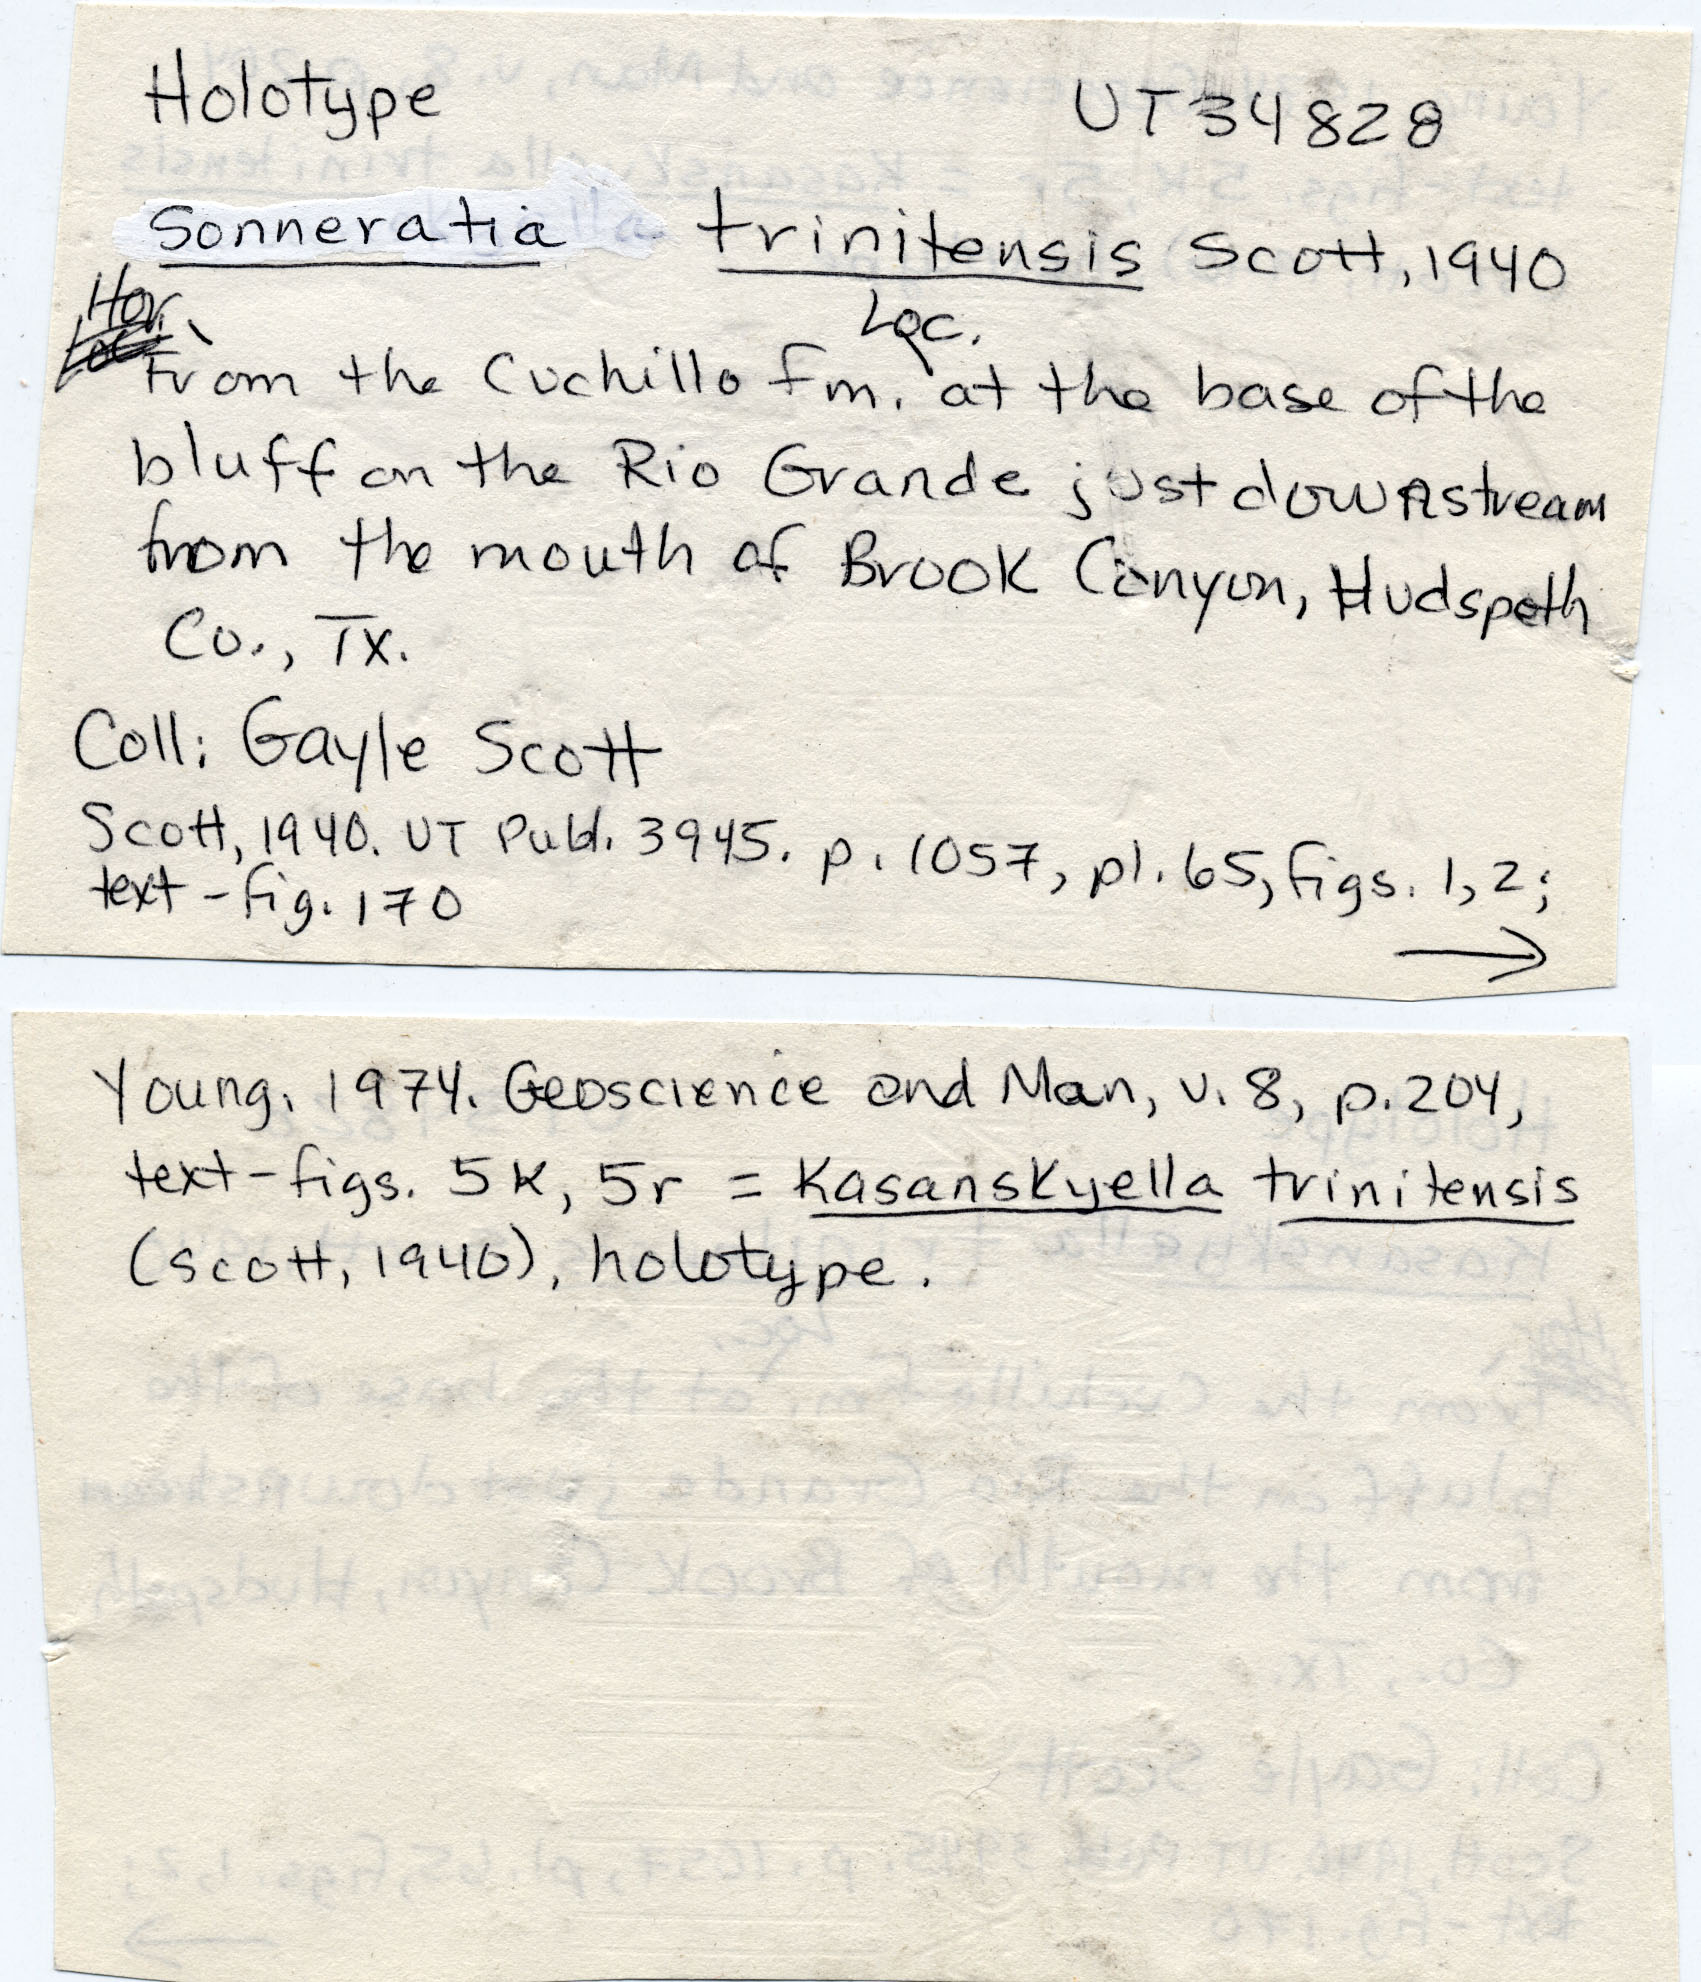 Holotype UT 34828
Sonneratia trinitensis Scott, 1940
Hor. Loc.
From the Cuchillo Fm. at the base of the
bluff on the Rio Grande just downstream
from the mouth of Brook Canyon, Hudspeth
Co., Tx.
Coll: Gayle Scott
Scott, 1940. UT Publ. 3945. p. 1057, pl. 65, figs. 1, 2;
text-fig. 170
→
Young, 1974. Geoscience and Man, v. 8, p. 204,
text-figs. 5K, 5r = Kasanskyella trinitensis
(Scott, 1940), holotype.